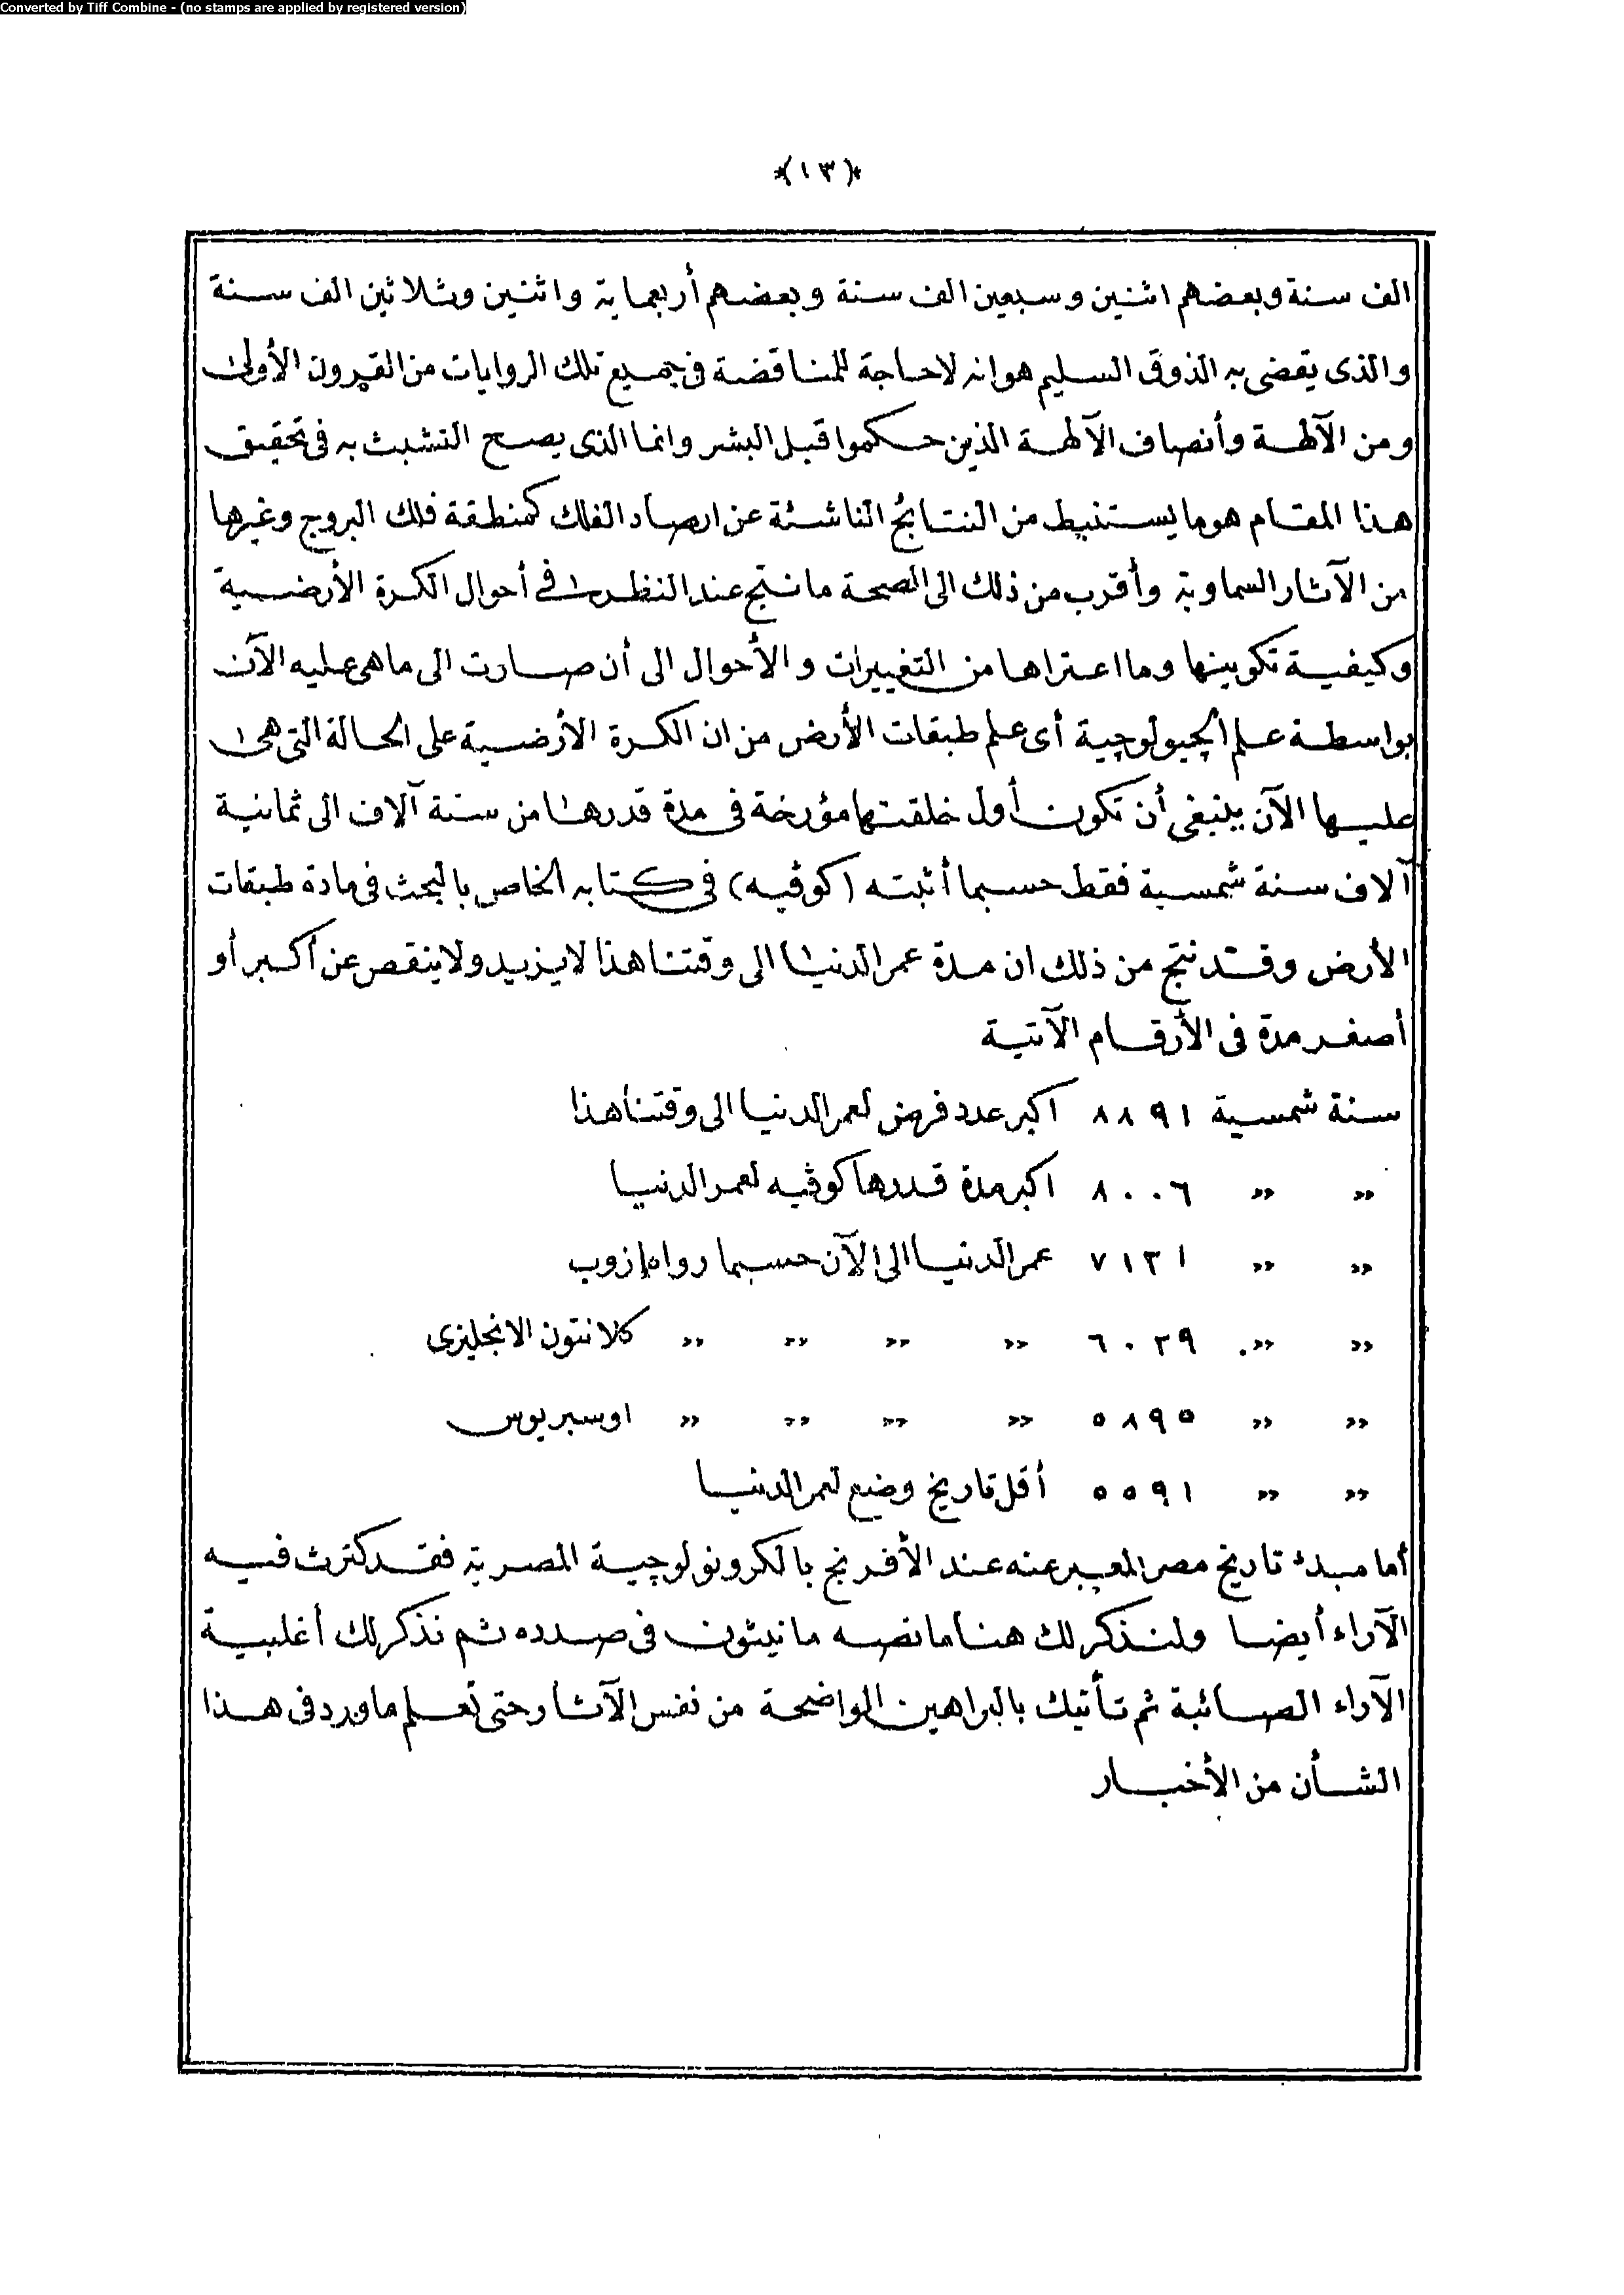 Converted by Tiff Combine - (no stamps are applied by registered version)
﴿١٣﴾
الف سنة وبعضهم اثنين وسبعين الف سنة وبعضهم أربعماية واثنين وثلاثين الف سنة
والذى يقضى به الذوق السليم هو انه لاحاجة للمناقضة فى جميع تلك الروايات من القرون الأولى
ومن الآلهة وأنصاف الآلهة الذين حكموا قبل البشر وانما الذى يصح التشبث به فى تحقيق
هذا المقام هو ما يستنبط من النتائج الناشئة عن ارصاد الفلك كمنطقة فلك البروج وغيرها
من الآثار السماوية وأقرب من ذلك الى الصحة ما نتج عند النظر فى أحوال الكرة الأرضية
وكيفية تكوينها وما اعتراها من التغييرات والأحوال الى أن صارت الى ما هى عليه الآن
بواسطة علم الجيولوجية أى علم طبقات الأرض من ان الكرة الأرضية على الحالة التى هى
عليها الآن ينبغى أن تكون أول خلقتها مؤرخة فى مدة قدرها من ستة آلاف الى ثمانية
آلاف سنة شمسية فقط حسبما أثبته (كوڤيه) فى كتابه الخاص بالبحث فى مادة طبقات
الأرض وقد نتج من ذلك ان مدة عمر الدنيا الى وقتنا هذا لا يزيد ولا ينقص عن أكبر أو
أصغر مدة فى الأرقام الآتية
سنة شمسية ٨٨٩١ اكبر عدد فرض لعمر الدنيا الى وقتنا هذا
» » ٨٠٠٦ اكبر مدة قدرها كوڤيه لعمر الدنيا
» » ٧١٣١ عمر الدنيا الى الآن حسبما رواه إزوب
» » ٦٠٣٩ » » » » كلانتون الانجليزى
» » ٥٨٩٥ » » » » اوسبريوس
» » ٥٥٩١ أقل تاريخ وضع لعمر الدنيا
أما مبدء تاريخ مصر المعبر عنه عند الأفرنج بالكرونولوجية المصرية فقد كثرت فيه
الآراء أيضا ولنذكر لك هنا ما نصه مانيثون فى صدده ثم نذكر لك أغلبية
الآراء الصائبة ثم تأتيك بالبراهين الواضحة من نفس الآثار حتى تعلم ما ورد فى هذا
الشأن من الأخبار